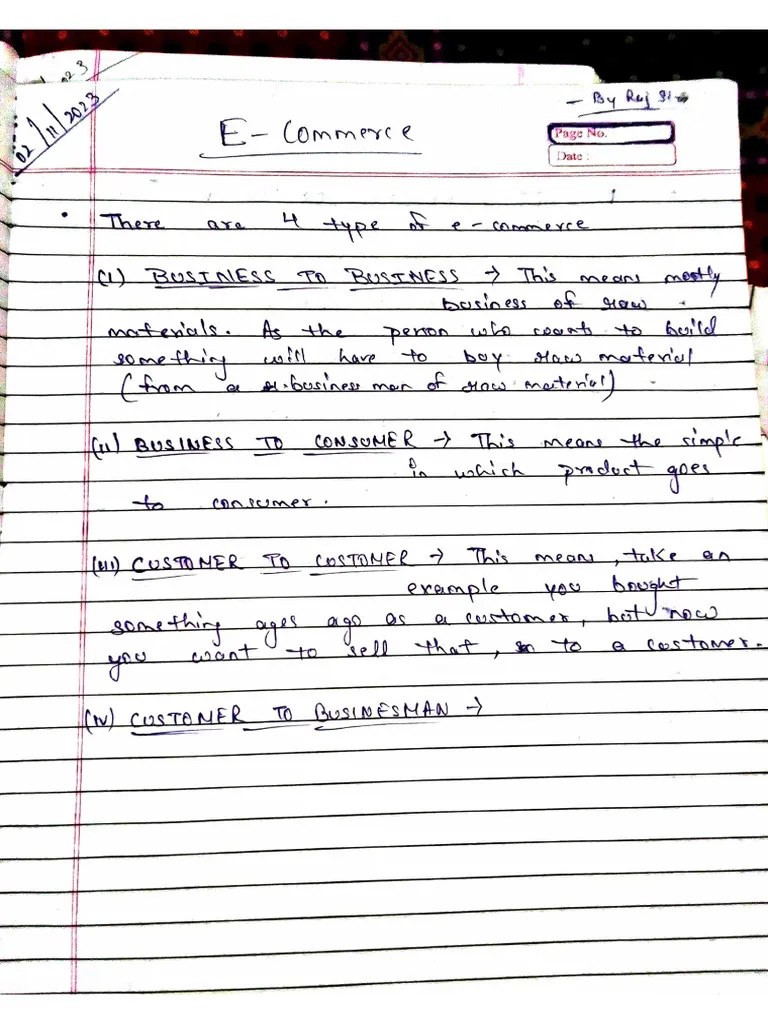 02/11/2023
- By Raj Sir
E-Commerce
Page No.
Date :
• There are 4 type of e-commerce
(I) BUSINESS TO BUSINESS → This means mostly
business of raw
materials. As the person who wants to build
something will have to buy raw material
(from a business man of raw material)
(II) BUSINESS TO CONSUMER → This means the simple
in which product goes
to consumer.
(III) CUSTOMER TO COSTOMER → This means, take an
example you bought
something ages ago as a customer, but now
you want to sell that, to a costomer.
(IV) CUSTOMER TO BUSINESMAN →